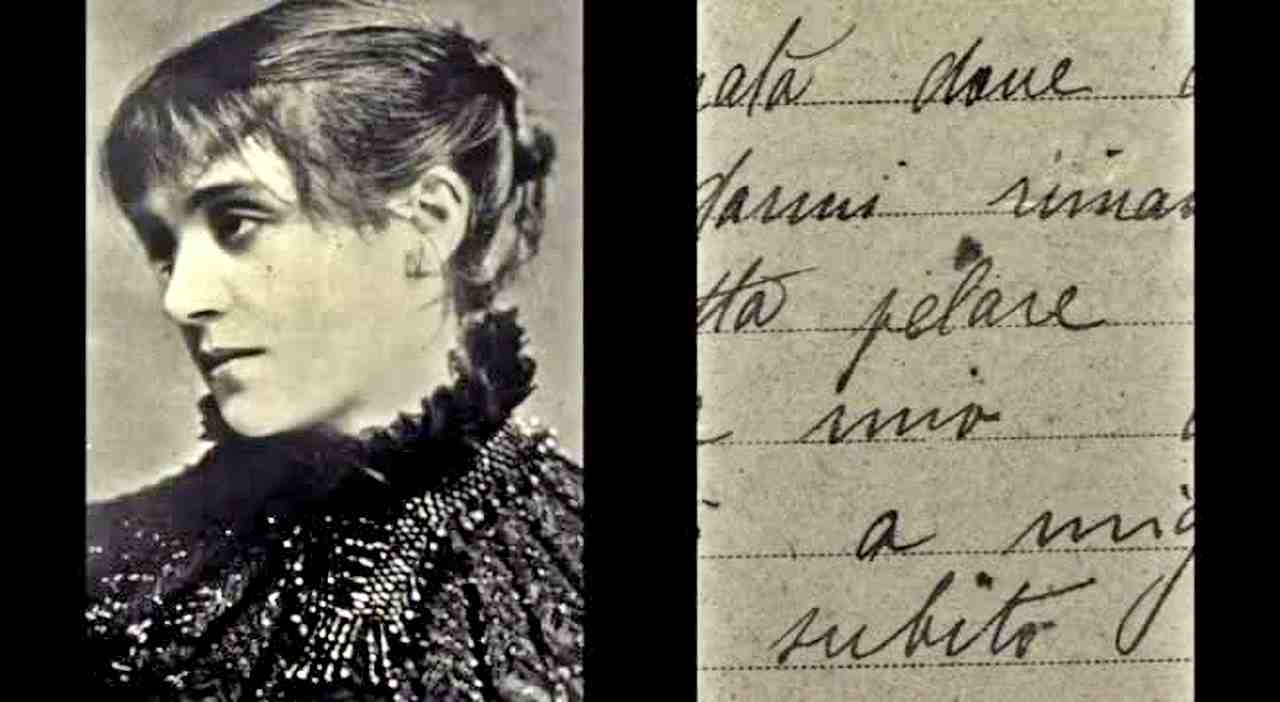 ata dove
darmi riman
tta pelare
mio
a mig
subito